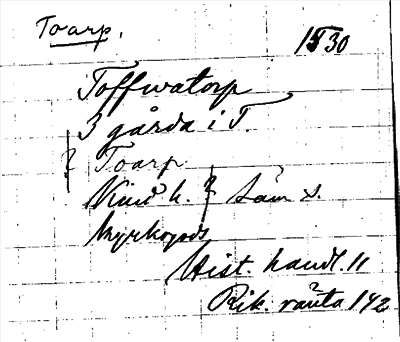 Toarp.
1530
Toffwatorp
3 gårda i T.
? Toarp
Kind h. ? Län s.
Kyrkogods
Hist. handl. 11
Rik. ränta 142